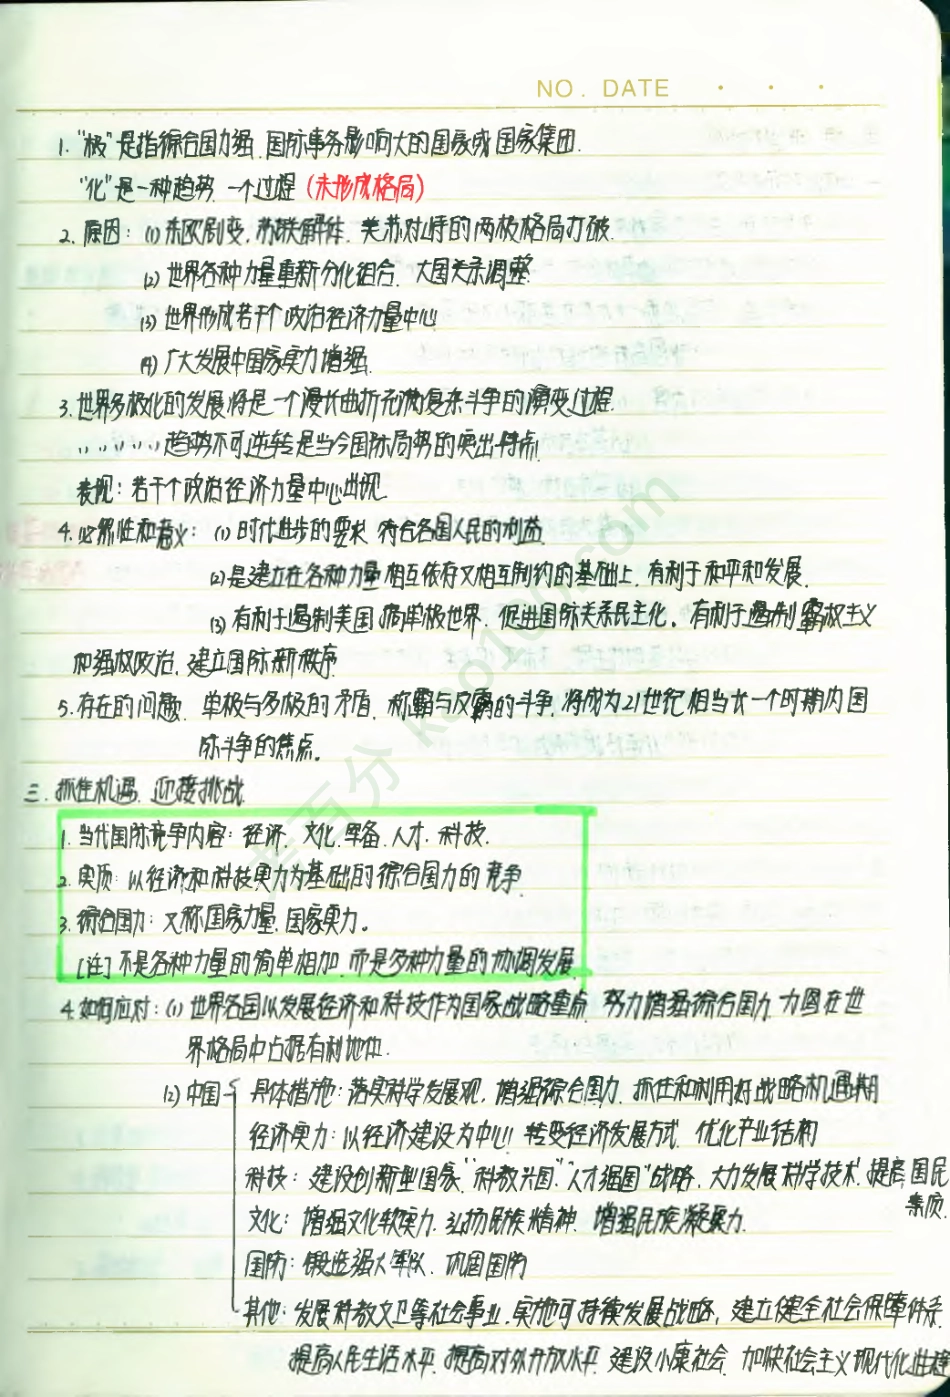 NO. DATE
1. “极”是指综合国力强、国际事务影响大的国家或国家集团.
“化”是一种趋势、一个过程 (未形成格局)
2. 原因: (1) 东欧剧变, 苏联解体. 美苏对峙的两极格局打破.
(2) 世界各种力量重新分化组合. 大国关系调整.
(3) 世界形成若干个政治经济力量中心
(4) 广大发展中国家实力增强.
3. 世界多极化的发展将是一个漫长曲折充满复杂斗争的演变过程.
〃〃〃〃〃趋势不可逆转是当今国际局势的突出特点
表现: 若干个政治经济力量中心出现.
4. 必然性和意义: (1) 时代进步的要求 符合各国人民的利益
(2) 是建立在各种力量相互依存又相互制约的基础上. 有利于和平和发展.
(3) 有利于遏制美国搞单极世界. 促进国际关系民主化。有利于遏制霸权主义
和强权政治. 建立国际新秩序
5. 存在的问题. 单极与多极的矛盾. 称霸与反霸的斗争, 将成为21世纪相当长一个时期内国
际斗争的焦点。
三. 抓住机遇. 迎接挑战.
1. 当代国际竞争内容: 经济. 文化. 军备. 人才. 科技.
2. 实质: 以经济和科技实力为基础的综合国力的竞争.
3. 综合国力: 又称国家力量. 国家实力。
[注] 不是各种力量的简单相加. 而是多种力量的协调发展.
4. 如何应对: (1) 世界各国以发展经济和科技作为国家战略重点. 努力增强综合国力. 力图在世
界格局中占据有利地位.
(2) 中国 具体措施: 落实科学发展观, 增强综合国力. 抓住和利用好战略机遇期
经济实力: 以经济建设为中心! 转变经济发展方式. 优化产业结构
科技: 建设创新型国家.“科教兴国”“人才强国”战略. 大力发展科学技术. 提高国民
素质.
文化: 增强文化软实力. 弘扬民族精神. 增强民族凝聚力.
国防: 锻造强大军队. 巩固国防
其他: 发展科教文卫等社会事业, 实施可持续发展战略, 建立健全社会保障体系.
提高人民生活水平. 提高对外开放水平. 建设小康社会. 加快社会主义现代化进程
考百分 kao100.com